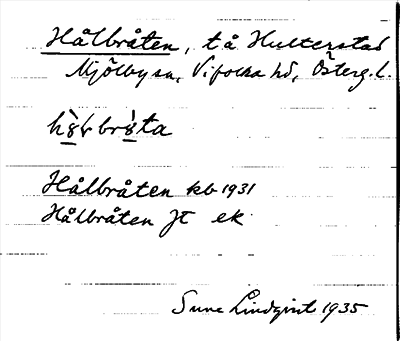 Hålbråten, t å Hulterstad
Mjölby sn, Vifolka hd, Österg. l.
Hålbråten kb 1931
Hålbråten Jt ek
Sune Lindqvist 1935